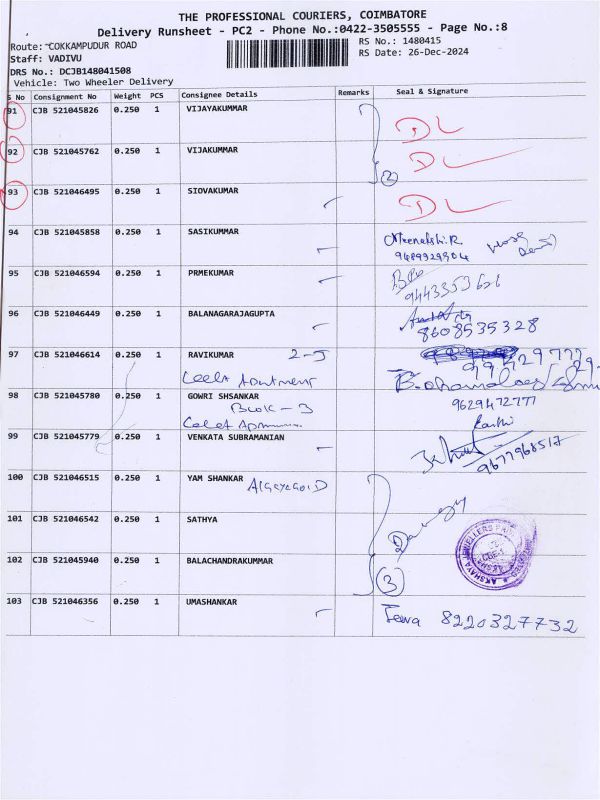 THE PROFESSIONAL COURIERS, COIMBATORE
Delivery Runsheet - PC2 - Phone No.:0422-3505555 - Page No.:8
Route: COKKAMPUDUR ROAD
RS No.: 1480415
Staff: VADIVU
RS Date: 26-Dec-2024
DRS No.: DCJB148041508
Vehicle: Two Wheeler Delivery
S No Consignment No Weight PCS Consignee Details Remarks Seal & Signature
91 CJB 521045826 0.250 1 VIJAYAKUMMAR DL
92 CJB 521045762 0.250 1 VIJAKUMMAR DL
2
93 CJB 521046495 0.250 1 SIOVAKUMAR DL
94 CJB 521045858 0.250 1 SASIKUMMAR Meenakshi.R.
95 CJB 521046594 0.250 1 PRMEKUMAR
9443353626
96 CJB 521046449 0.250 1 BALANAGARAJAGUPTA
8608535328
97 CJB 521046614 0.250 1 RAVIKUMAR 2-J
98 CJB 521045780 0.250 1 GOWRI SHSANKAR
Block - 3
9629472777
99 CJB 521045779 0.250 1 VENKATA SUBRAMANIAN
9677968517
100 CJB 521046515 0.250 1 YAM SHANKAR
101 CJB 521046542 0.250 1 SATHYA
102 CJB 521045940 0.250 1 BALACHANDRAKUMMAR
3
AKSHAYA JEWELLERS
103 CJB 521046356 0.250 1 UMASHANKAR
8220327732